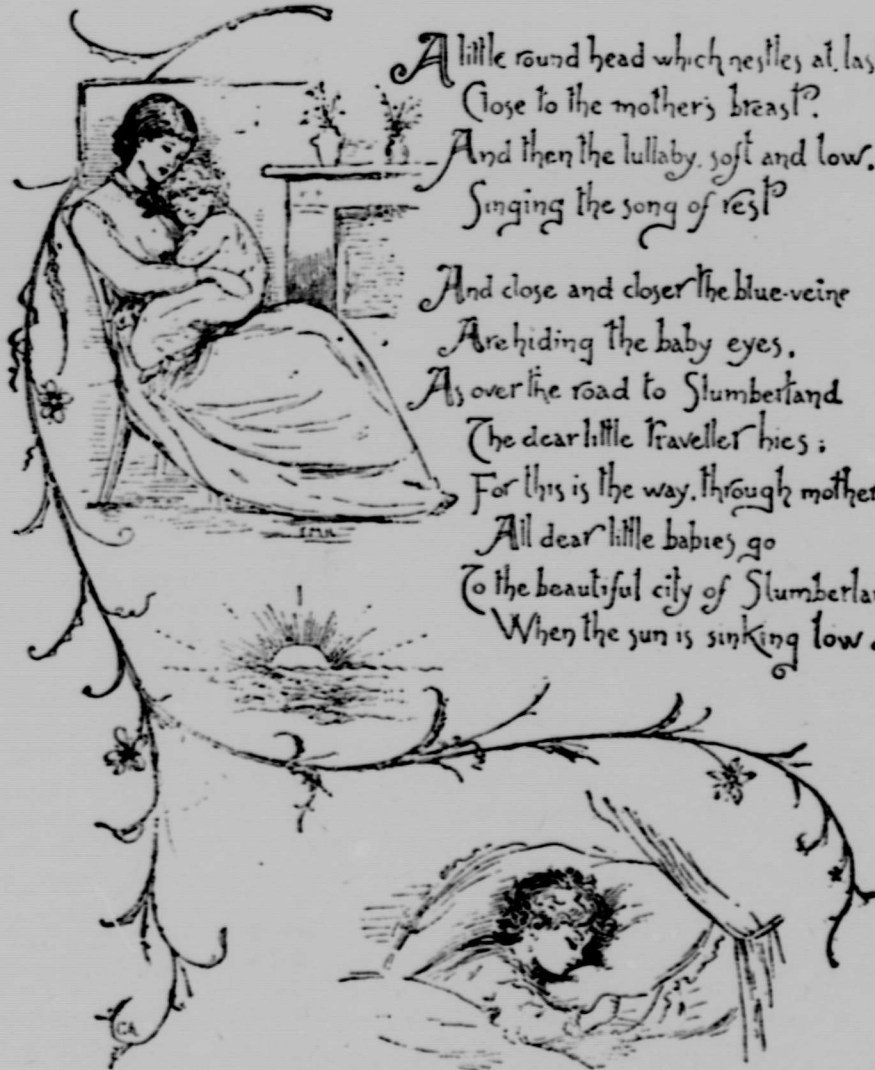 A little round head which nestles at las
Close to the mother's breast?
And then the lullaby, soft and low,
Singing the song of rest?
And close and closer the blue-veine
Are hiding the baby eyes,
As over the road to Slumberland
The dear little traveller hies;
For this is the way, through mother
All dear little babies go
To the beautiful city of Slumberla
When the sun is sinking low.
E.M.H.
CA